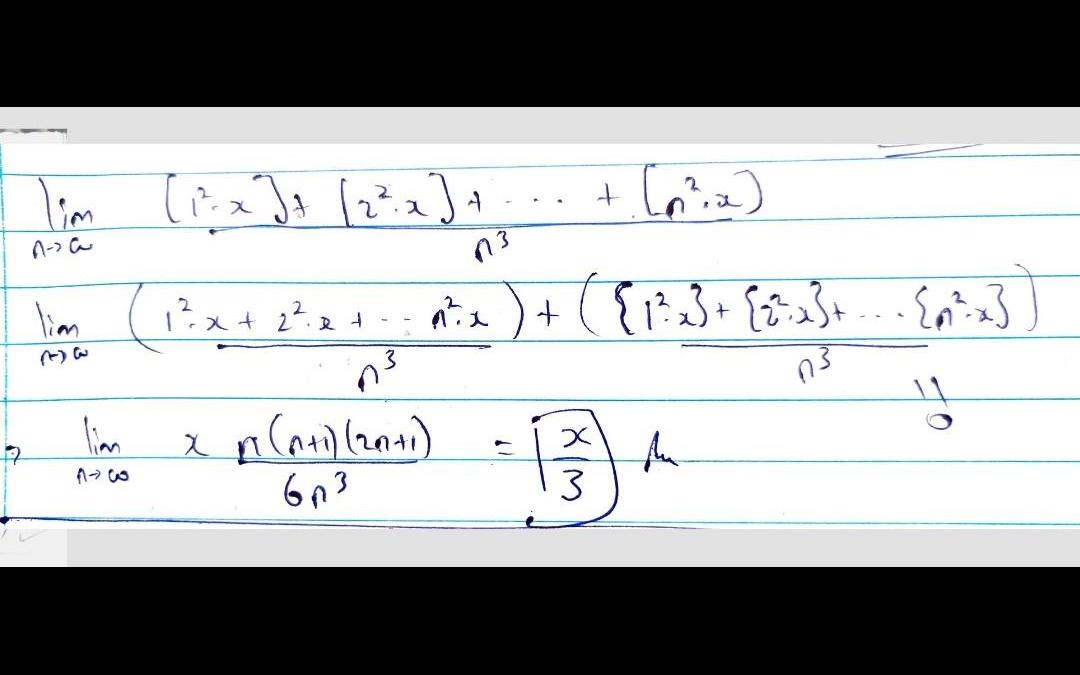 lim n→∞ [1².x] + [2².x] + ... + [n².x] / n³
lim n→∞ (1².x + 2².x + -- n².x) / n³ + ({1².x} + {2².x} + .... {n².x}) / n³
0
⇒ lim n→∞ x n(n+1)(2n+1) / 6n³ = x/3